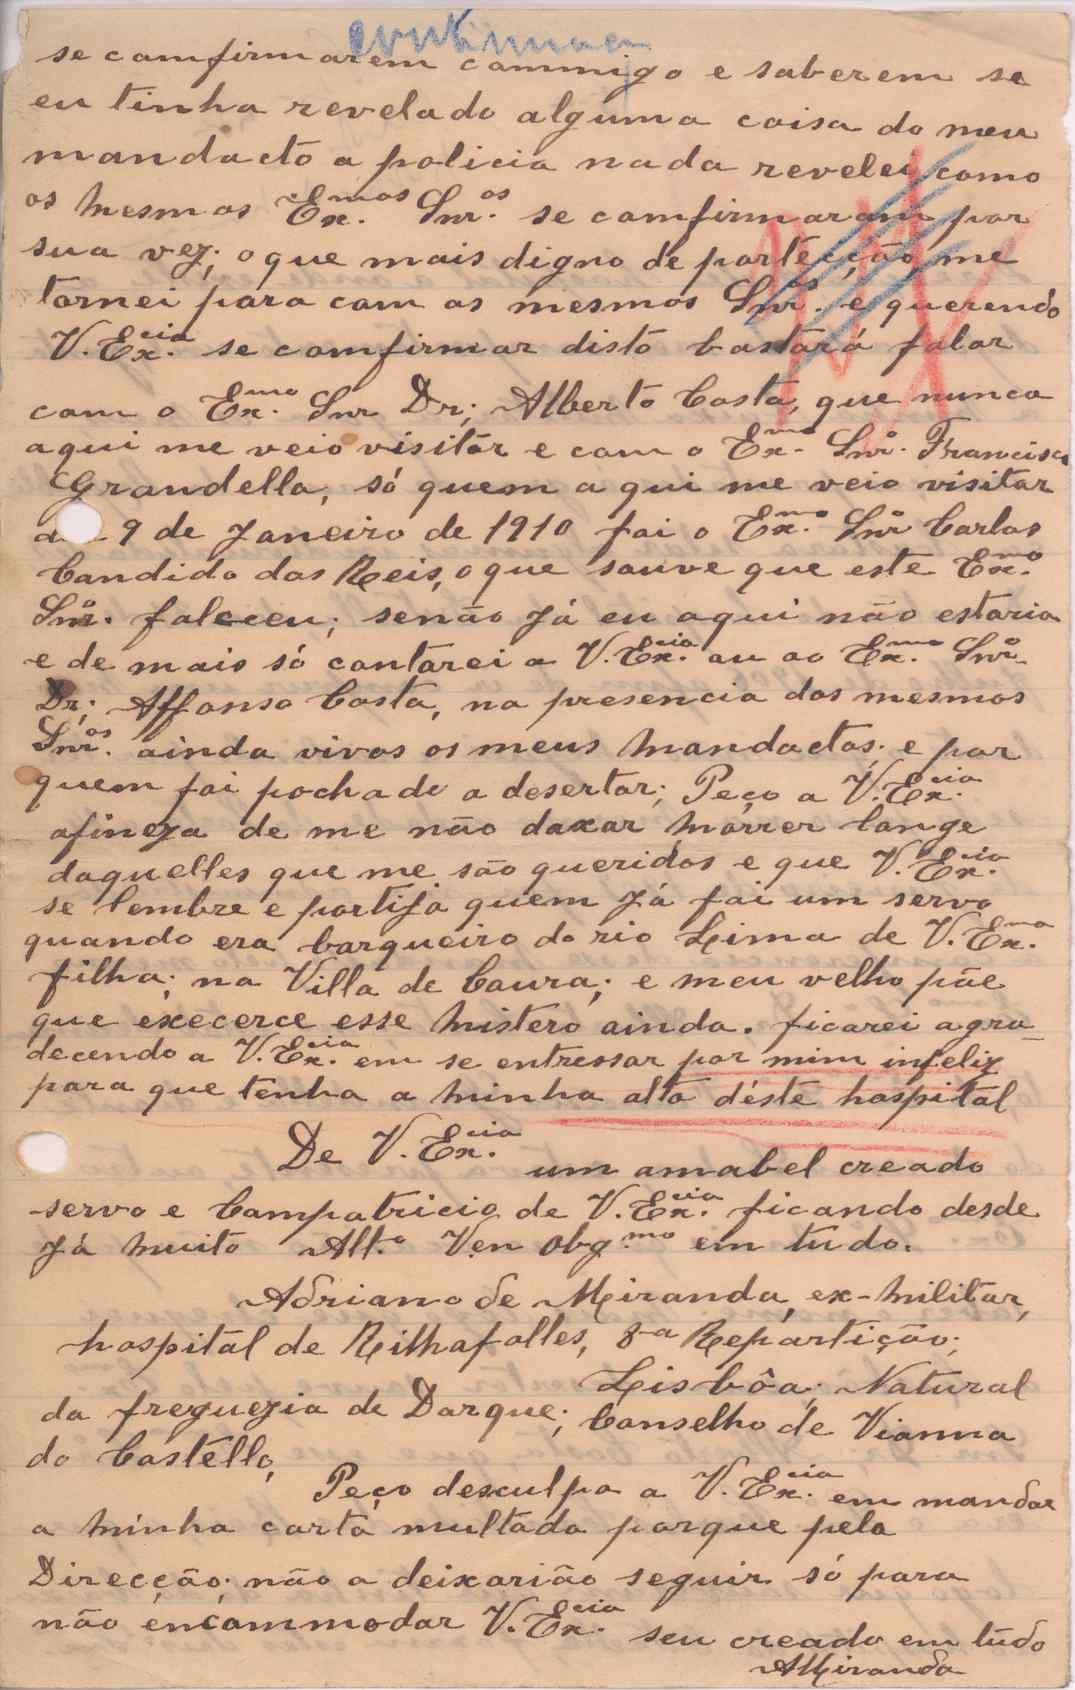 continuaen
se comfirmarem commigo e saberem se
eu tinha revelado alguma coisa do meu
mandacto a policia nada revelei como
os mesmos Ex.mos Snr.os se comfirmaram por
sua vez; o que mais digno de portecção, me
tornei para com os mesmos Snr.os e querendo
V. Ex.cia se comfirmar disto bastará falar
com o Ex.mo Snr Dr; Alberto Costa, que nunca
aqui me veio visitar e com o Ex.mo Snr.o Francisco
Grandella, só quem aqui me veio visitar
a 9 de Janeiro de 1910 foi o Ex.mo Snr.o Carlos
Candido dos Reis, o que souve que este Ex.mo
Snr.o faleceu; senão Já eu aqui não estaria
e de mais só contarei a V. Ex.cia ou ao Ex.mo Snr.o
Dr; Affonso Costa, na presencia dos mesmos
Snr.os ainda vivos os meus mandactos; e por
quem foi pochado a desertar; Peço a V. Ex.cia
afineza de me não daxar morrer longe
daquelles que me são queridos e que V. Ex.cia
se lembre e portija quem Já foi um servo
quando era barqueiro do rio Lima de V. Ex.ma
filha; na Villa de Caura; e meu velho pãe
que execerce esse mistero ainda. ficarei agra-
decendo a V. Ex.cia em se entressar por mim infeliz
para que tenha a minha alta déste hospital
De V. Ex.cia um amabel creado
servo e Compatricio de V. Ex.cia ficando desde
Já muito Alt.o Ven Obg.mo em tudo.
Adriano de Miranda, ex-militar,
hospital de Rilhafolles, 8.a Repartição;
Lisbôa; Natural
da freguezia de Darque; Conselho de Vianna
do Castello,
Peço desculpa a V. Ex.cia em mandar
a minha carta multada porque pela
Direcção; não a deixarião seguir só para
não encommodar V. Ex.cia seu creado em tudo
AMiranda